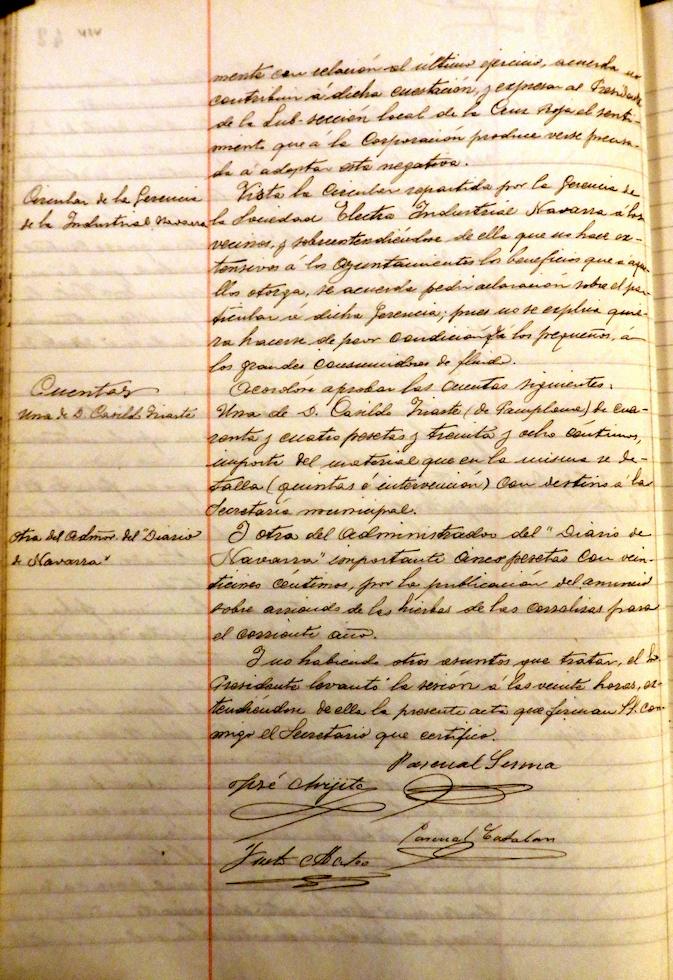 mente con relación al último ejercicio, acuerda no
contribuir á dicha cuestación, y expresar al Presidente
de la Sub-sección local de la Cruz Roja el senti-
miento que á la Corporación produce verse precisa-
da á adoptar esta negativa.
Circular de la Gerencia
de la Industrial Navarra
Vista la circular repartida por la Gerencia de
la Sociedad Electra Industrial Navarra á los
vecinos, y sobreentendiéndose de ella que no hace ex-
tensivos á los Ayuntamientos los beneficios que á aque-
llos otorga, se acuerda pedir aclaración sobre el par-
ticular á dicha Gerencia; pues no se explica quie-
ra hacerse de peor condición á los pequeños, á
los grandes consumidores de fluido.
Cuentas
Una de D. Casildo Iriarte
Acordose aprobar las cuentas siguientes:
Una de D. Casildo Iriarte (de Pamplona) de cua-
renta y cuatro pesetas y treinta y ocho céntimos,
importe del material que en la misma se de-
talla (quintas é intervención) con destino á la
Secretaría municipal.
otra del Admor. del "Diario
de Navarra"
Y otra del Administrador del "Diario de
Navarra" importante cinco pesetas con vein-
ticinco céntimos, por la publicación del anuncio
sobre arriendo de las hierbas de las corralizas para
el corriente año.
Y no habiendo otros asuntos que tratar, el Sr.
Presidente levantó la sesión á las veinte horas, ex-
tendiéndose de ella la presente acta que firman SS. con-
migo el Secretario que certifico.
Pascual Serma
José
Pascual Catalan
Justo Mateo